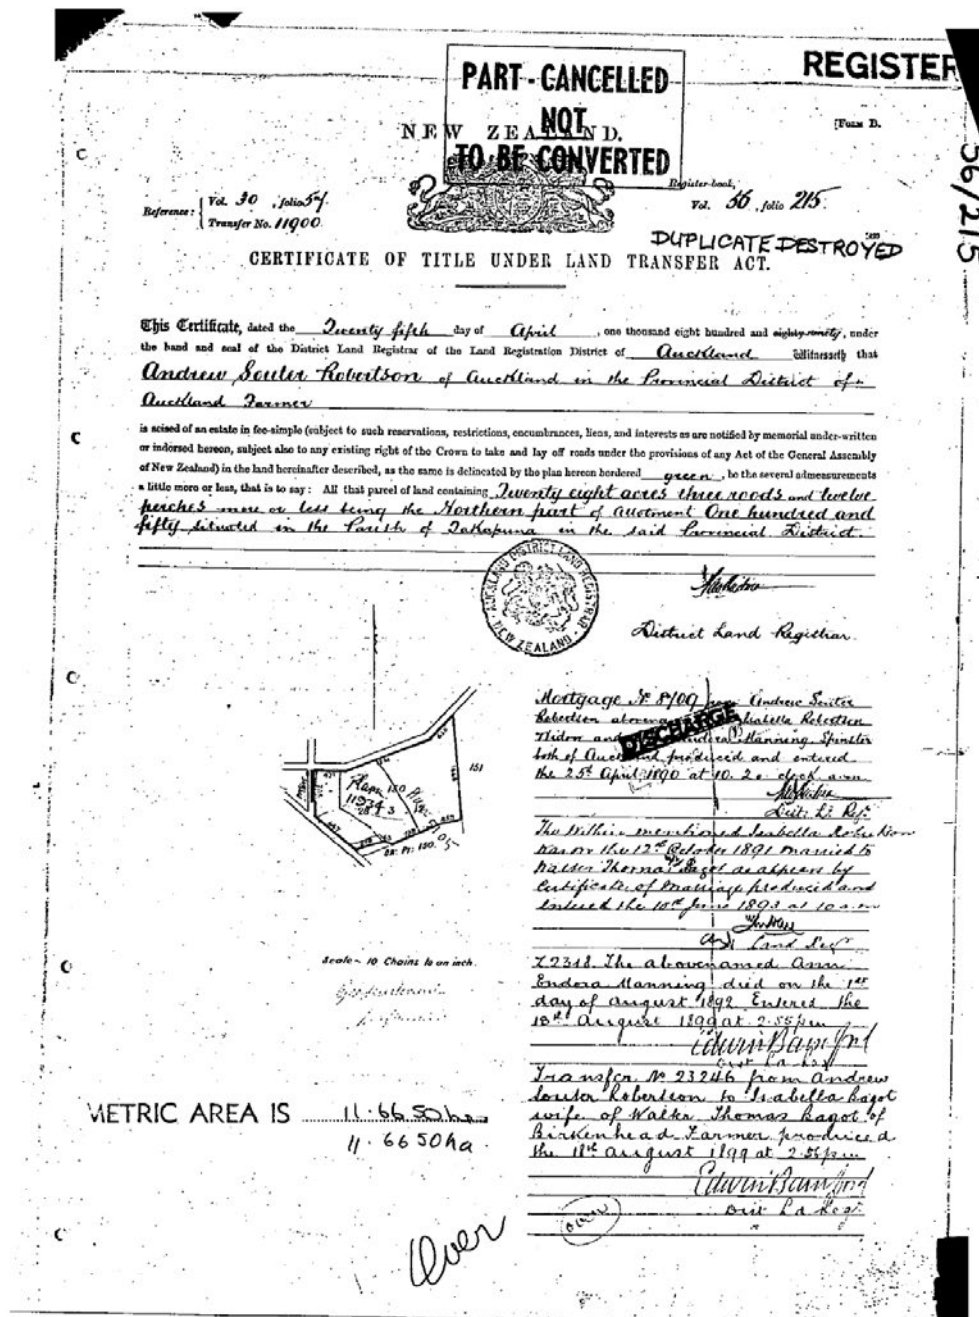 REGISTER
PART-CANCELLED
NOT
TO BE CONVERTED
NEW ZEALAND.
[Form D.
56/215
Reference: Vol. 30, folio 54
Transfer No. 11900
Register-book,
Vol. 56, folio 215.
DUPLICATE DESTROYED
CERTIFICATE OF TITLE UNDER LAND TRANSFER ACT.
This Certificate, dated the Twenty fifth day of April, one thousand eight hundred and ninety, under
the hand and seal of the District Land Registrar of the Land Registration District of Auckland Witnesseth that
Andrew Souter Robertson of Auckland in the Provincial District of
Auckland Farmer
is seised of an estate in fee-simple (subject to such reservations, restrictions, encumbrances, liens, and interests as are notified by memorial under-written
or indorsed hereon, subject also to any existing right of the Crown to take and lay off roads under the provisions of any Act of the General Assembly
of New Zealand) in the land hereinafter described, as the same is delineated by the plan hereon bordered green, be the several admeasurements
a little more or less, that is to say: All that parcel of land containing Twenty eight acres three roods and twelve
perches more or less being the Northern part of allotment One hundred and
fifty situated in the Parish of Takapuna in the said Provincial District.
AUCKLAND DISTRICT LAND REGISTRAR
NEW ZEALAND
District Land Registrar.
Mortgage No 8709 from Andrew Souter
Robertson Isabella Robertson
Widow and Manning, Spinster
both of Auckland produced and entered
the 25th April 1890 at 10.20 clock a.m.
DISCHARGE
Dist. L. Regr.
The Within mentioned Isabella Robertson
was on the 12th October 1891 married to
Walter Thomas Bagot as appears by
Certificate of Marriage produced and
entered the 10th June 1893 at 10 a.m
Land Regr
151
Plan 150
11934
Pt. 150.
Scale - 10 Chains to an inch.
Z2318. The abovenamed Ann
Endora Manning died on the 1st
day of August 1892 Entered the
18th August 1899 at 2.55 pm
Edwin Bamford
Dist La Regr
Transfer No 23246 from Andrew
Souter Robertson to Isabella Bagot
wife of Walter Thomas Bagot of
Birkenhead Farmer produced
the 18th August 1899 at 2.55 pm
Edwin Bamford
Dist La Regr.
METRIC AREA IS 11.6650ha
11.6650ha
over
Over